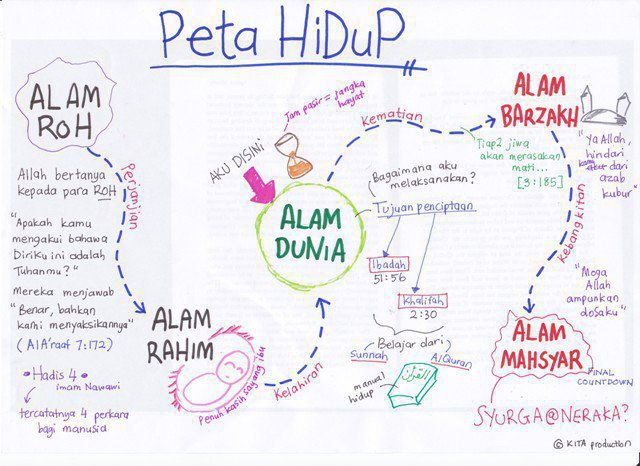 Peta HiDuP
ALAM
ROH
Allah bertanya
kepada para ROH
"Apakah kamu
mengakui bahawa
Diriku ini adalah
Tuhanmu?"
Mereka menjawab
"Benar, bahkan
kami menyaksikannya"
(Al A'raaf 7:172)
•Hadis 4•
imam Nawawi
tercatatnya 4 perkara
bagi manusia
Perjanjian
ALAM
RAHIM
Penuh kasih sayang ibu
Kelahiran
AKU DISINI
Jam pasir = jangka
hayat
ALAM
DUNIA
Bagaimana aku
melaksanakan?
Tujuan penciptaan
Ibadah
51:56
Khalifah
2:30
Belajar dari
Sunnah
Al Quran
manual
hidup
القرآن
Kematian
Tiap2 jiwa
akan merasakan
mati...
[3:185]
ALAM
BARZAKH
"Ya Allah,
hindari
kami
dari
azab
kubur
Kebangkitan
"Moga
Allah
ampunkan
dosaku"
ALAM
MAHSYAR
FINAL
COUNTDOWN
SYURGA@NERAKA?
© KITA production